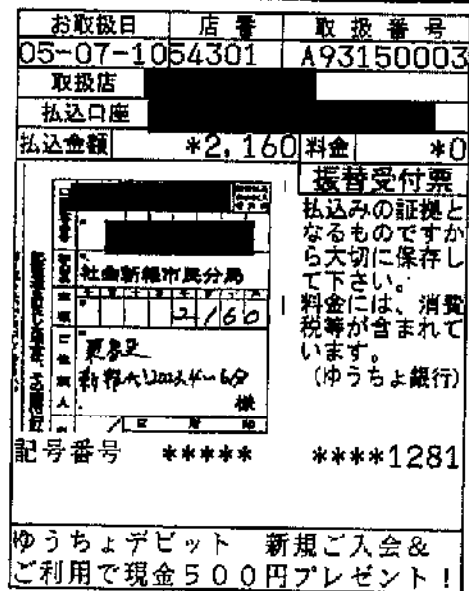 お取扱日 店番 取扱番号
05-07-10 54301 A93150003
取扱店
払込口座
払込金額 *2,160 料金 *0
振替受付票
払込みの証拠と
なるものですか
ら大切に保存し
て下さい。
料金には、消費
税等が含まれて
います。
(ゆうちょ銀行)
社会新報市民分局
2160
様
記号番号 ***** ****1281
ゆうちょデビット 新規ご入会&
ご利用で現金500円プレゼント!